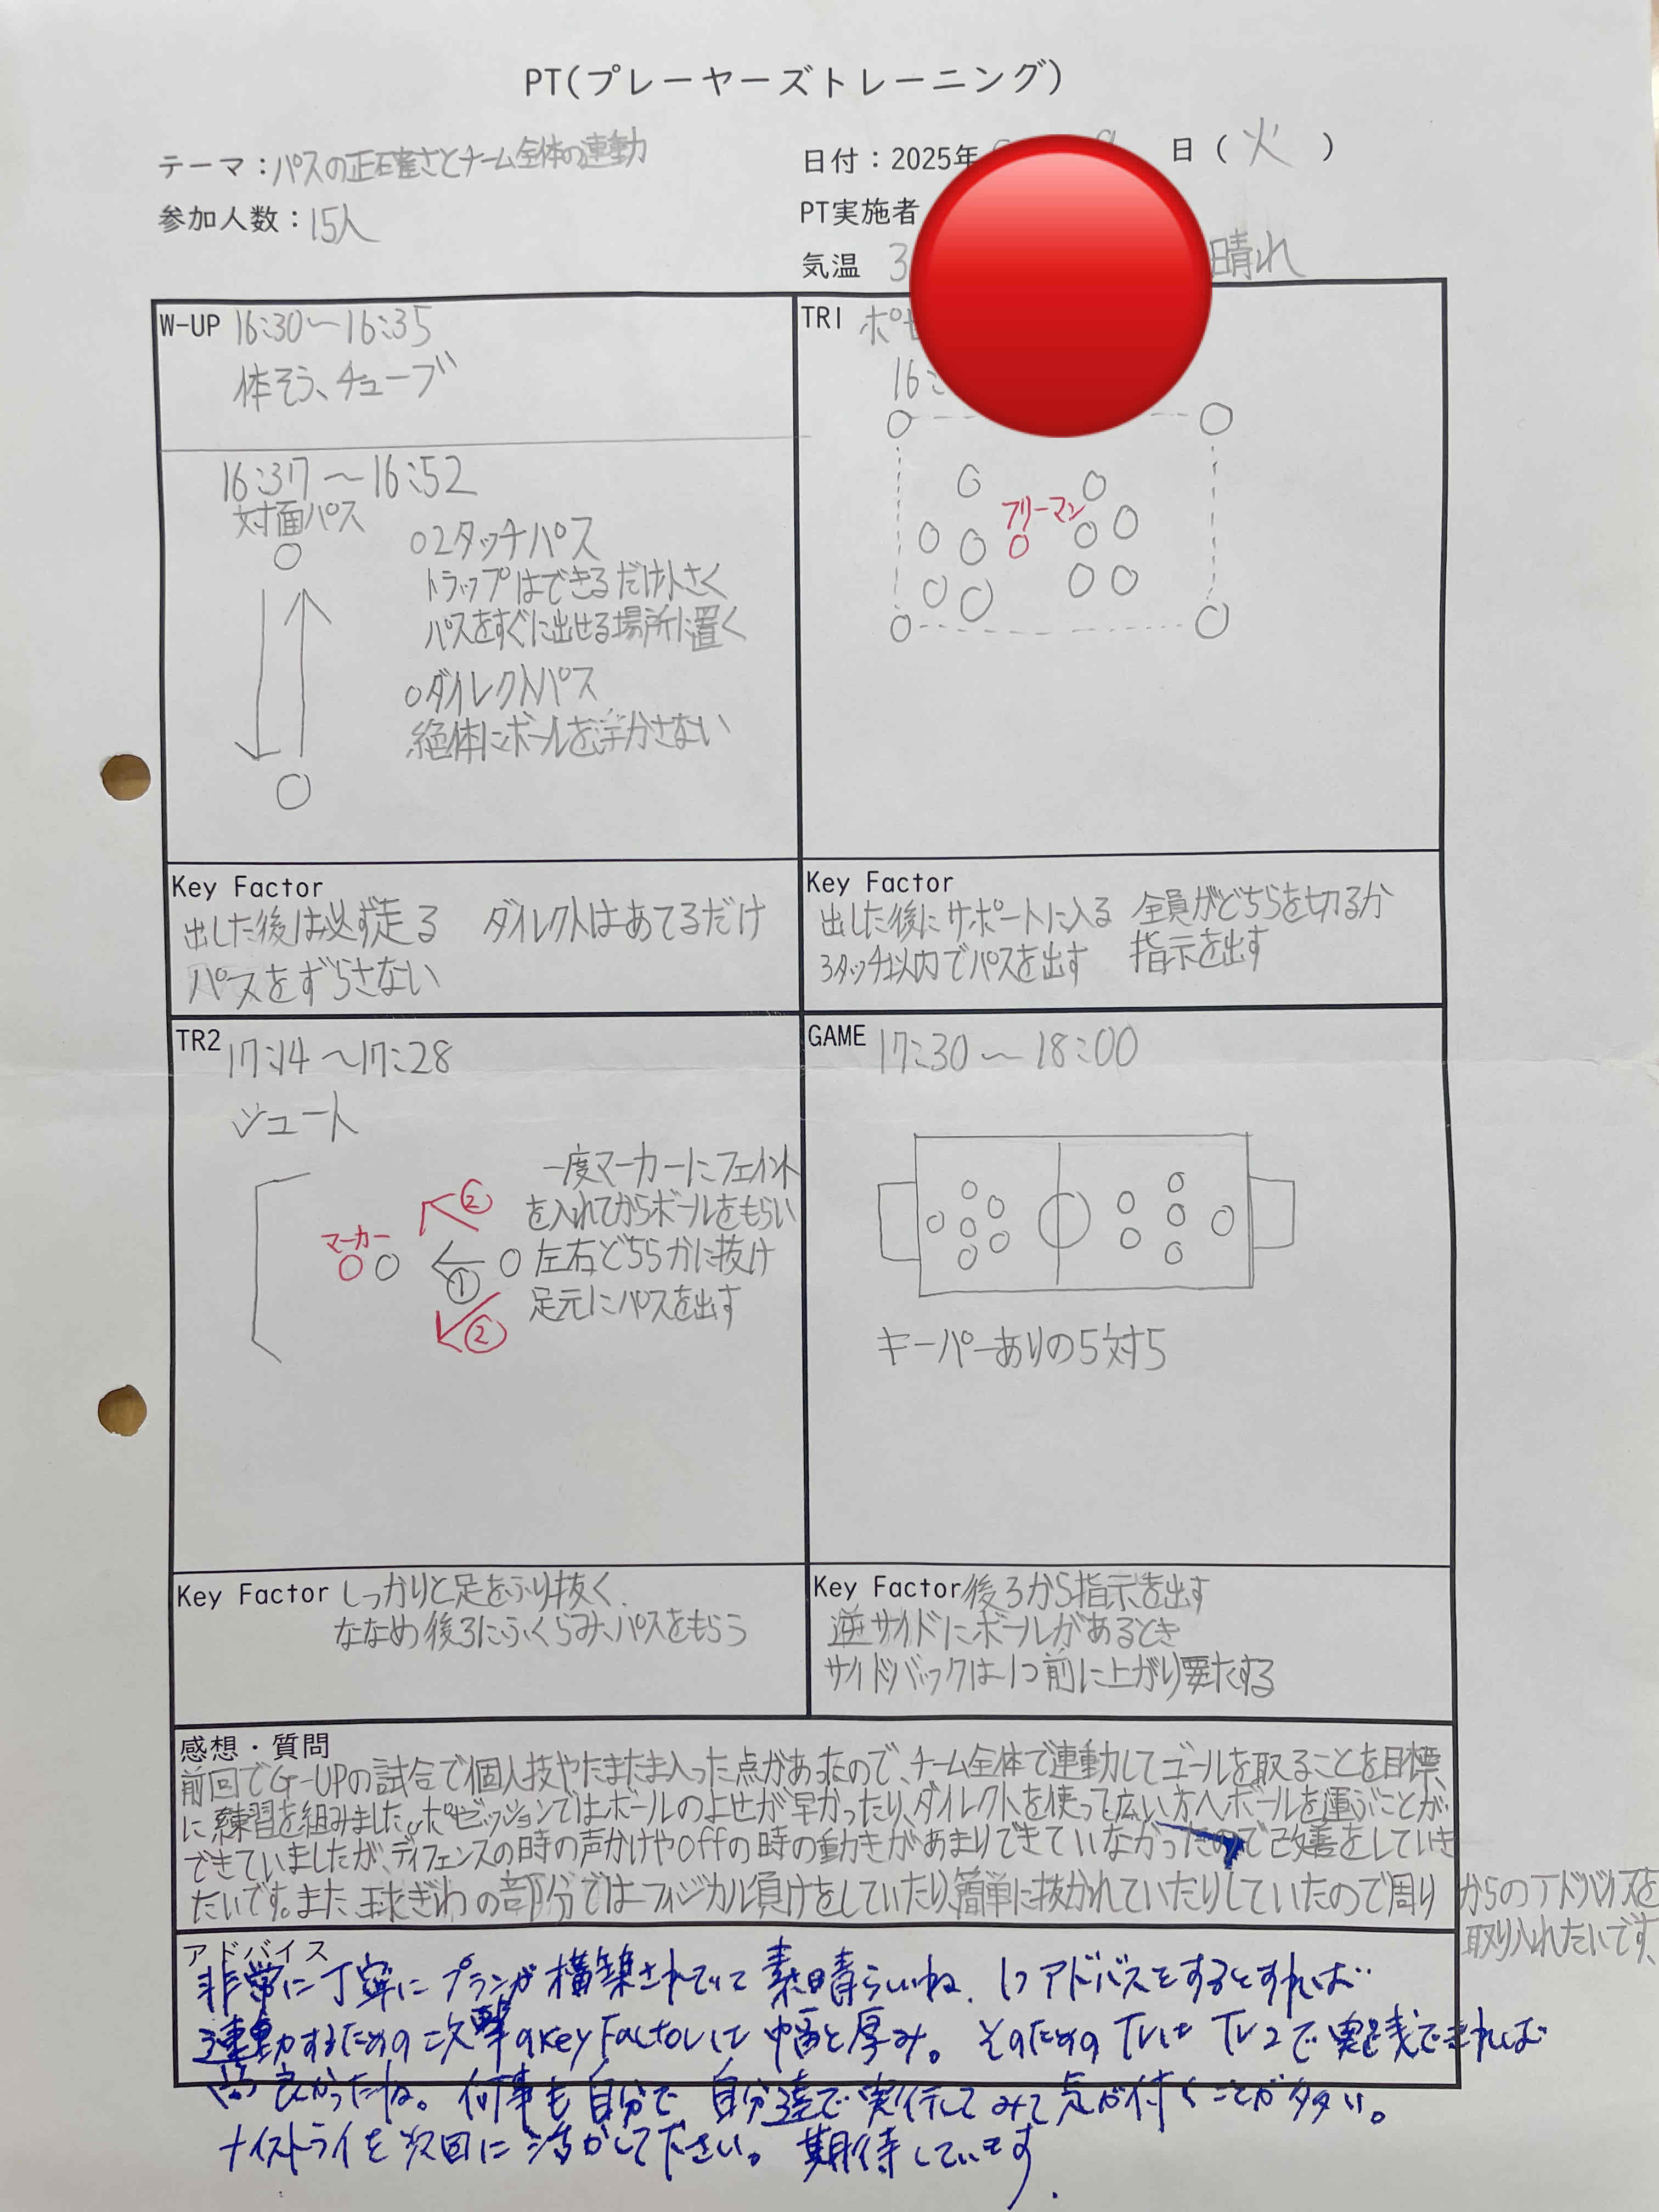 PT(プレーヤーズトレーニング)
テーマ：パスの正確さとチーム全体の連動
日付：2025年 日（火）
参加人数：15人
PT実施者
気温 3 晴れ
W-UP 16:30〜16:35
体そう、チューブ
16:37〜16:52
対面パス
○2タッチパス
トラップはできるだけ小さく
パスをすぐに出せる場所に置く
○ダイレクトパス
絶体にボールを浮かさない
Key Factor
出した後は必ず走る ダイレクトはあてるだけ
パスをずらさない
TR1 ポゼ
16:
フリーマン
Key Factor
出した後にサポートに入る 全員がどちらを切るか
3タッチ以内でパスを出す 指示を出す
TR2 17:14〜17:28
シュート
一度マーカーにフェイント
を入れてからボールをもらい
左右どちらかに抜け
足元にパスを出す
マーカー
②
①
②
Key Factor しっかりと足をふり抜く
ななめ後ろにふくらみ、パスをもらう
GAME 17:30〜18:00
キーパーありの5対5
Key Factor 後ろから指示を出す
逆サイドにボールがあるとき
サイドバックは1つ前に上がり要求する
感想・質問
前回でG-UPの試合で個人技やたまたま入った点があったので、チーム全体で連動してゴールを取ることを目標
に練習を組みました。ポゼッションではボールのよせが早かったり、ダイレクトを使って広い方へボールを運ぶことが
できていましたが、ディフェンスの時の声かけやoffの時の動きがあまりできていなかったので改善をしていき
たいです。また、球ぎわの部分ではフィジカル負けをしていたり、簡単に抜かれていたりしていたので周りからのアドバイスを
取り入れたいです。
アドバイス
非常に丁寧にプランが構築されていて素晴らしいね。1つアドバスをするとすれば…
連動するための攻撃のKey Factorは幅と厚み。そのためのTr1とTr2で実践できれば
尚良かったね。何事も自分で、自分達で実行してみて点が付くことが多い。
ナイストライを次回に活かして下さい。期待しています。